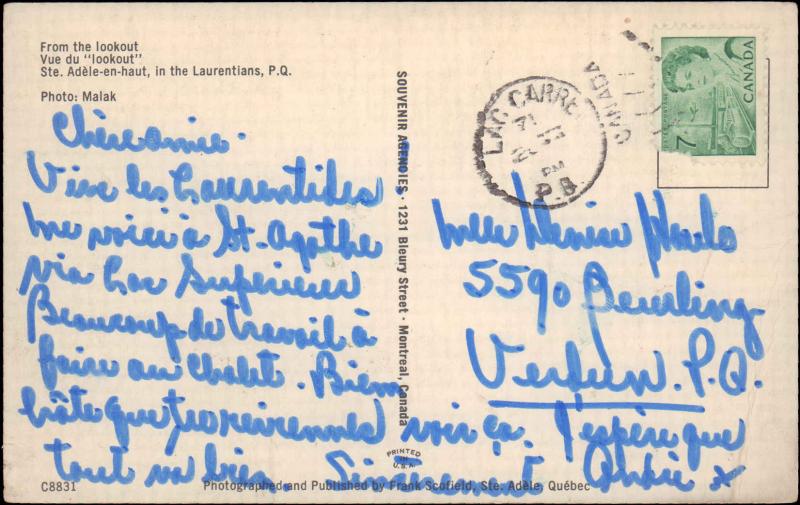 From the lookout
Vue du "lookout"
Ste. Adèle-en-haut, in the Laurentians, P.Q.
Photo: Malak
Chère amie.
Vive les Laurentides
me voici à St. Agathe
via Lac Supérieur
Beaucoup de travail à
faire au chalet. Bien
hâte que tu reviennes voir ça. J'espère que
tout va bien. Sincèrement
SOUVENIR AGENCIES · 1231 Bleury Street · Montreal, Canada
LAC CARRE
PM
P.Q.
CANADA
CANADA
7
Mlle Denise
5590 Beurling
Verdun. P.Q.
PRINTED
IN
U.S.A.
C8831
Photographed and Published by Frank Scofield, Ste. Adèle, Québec